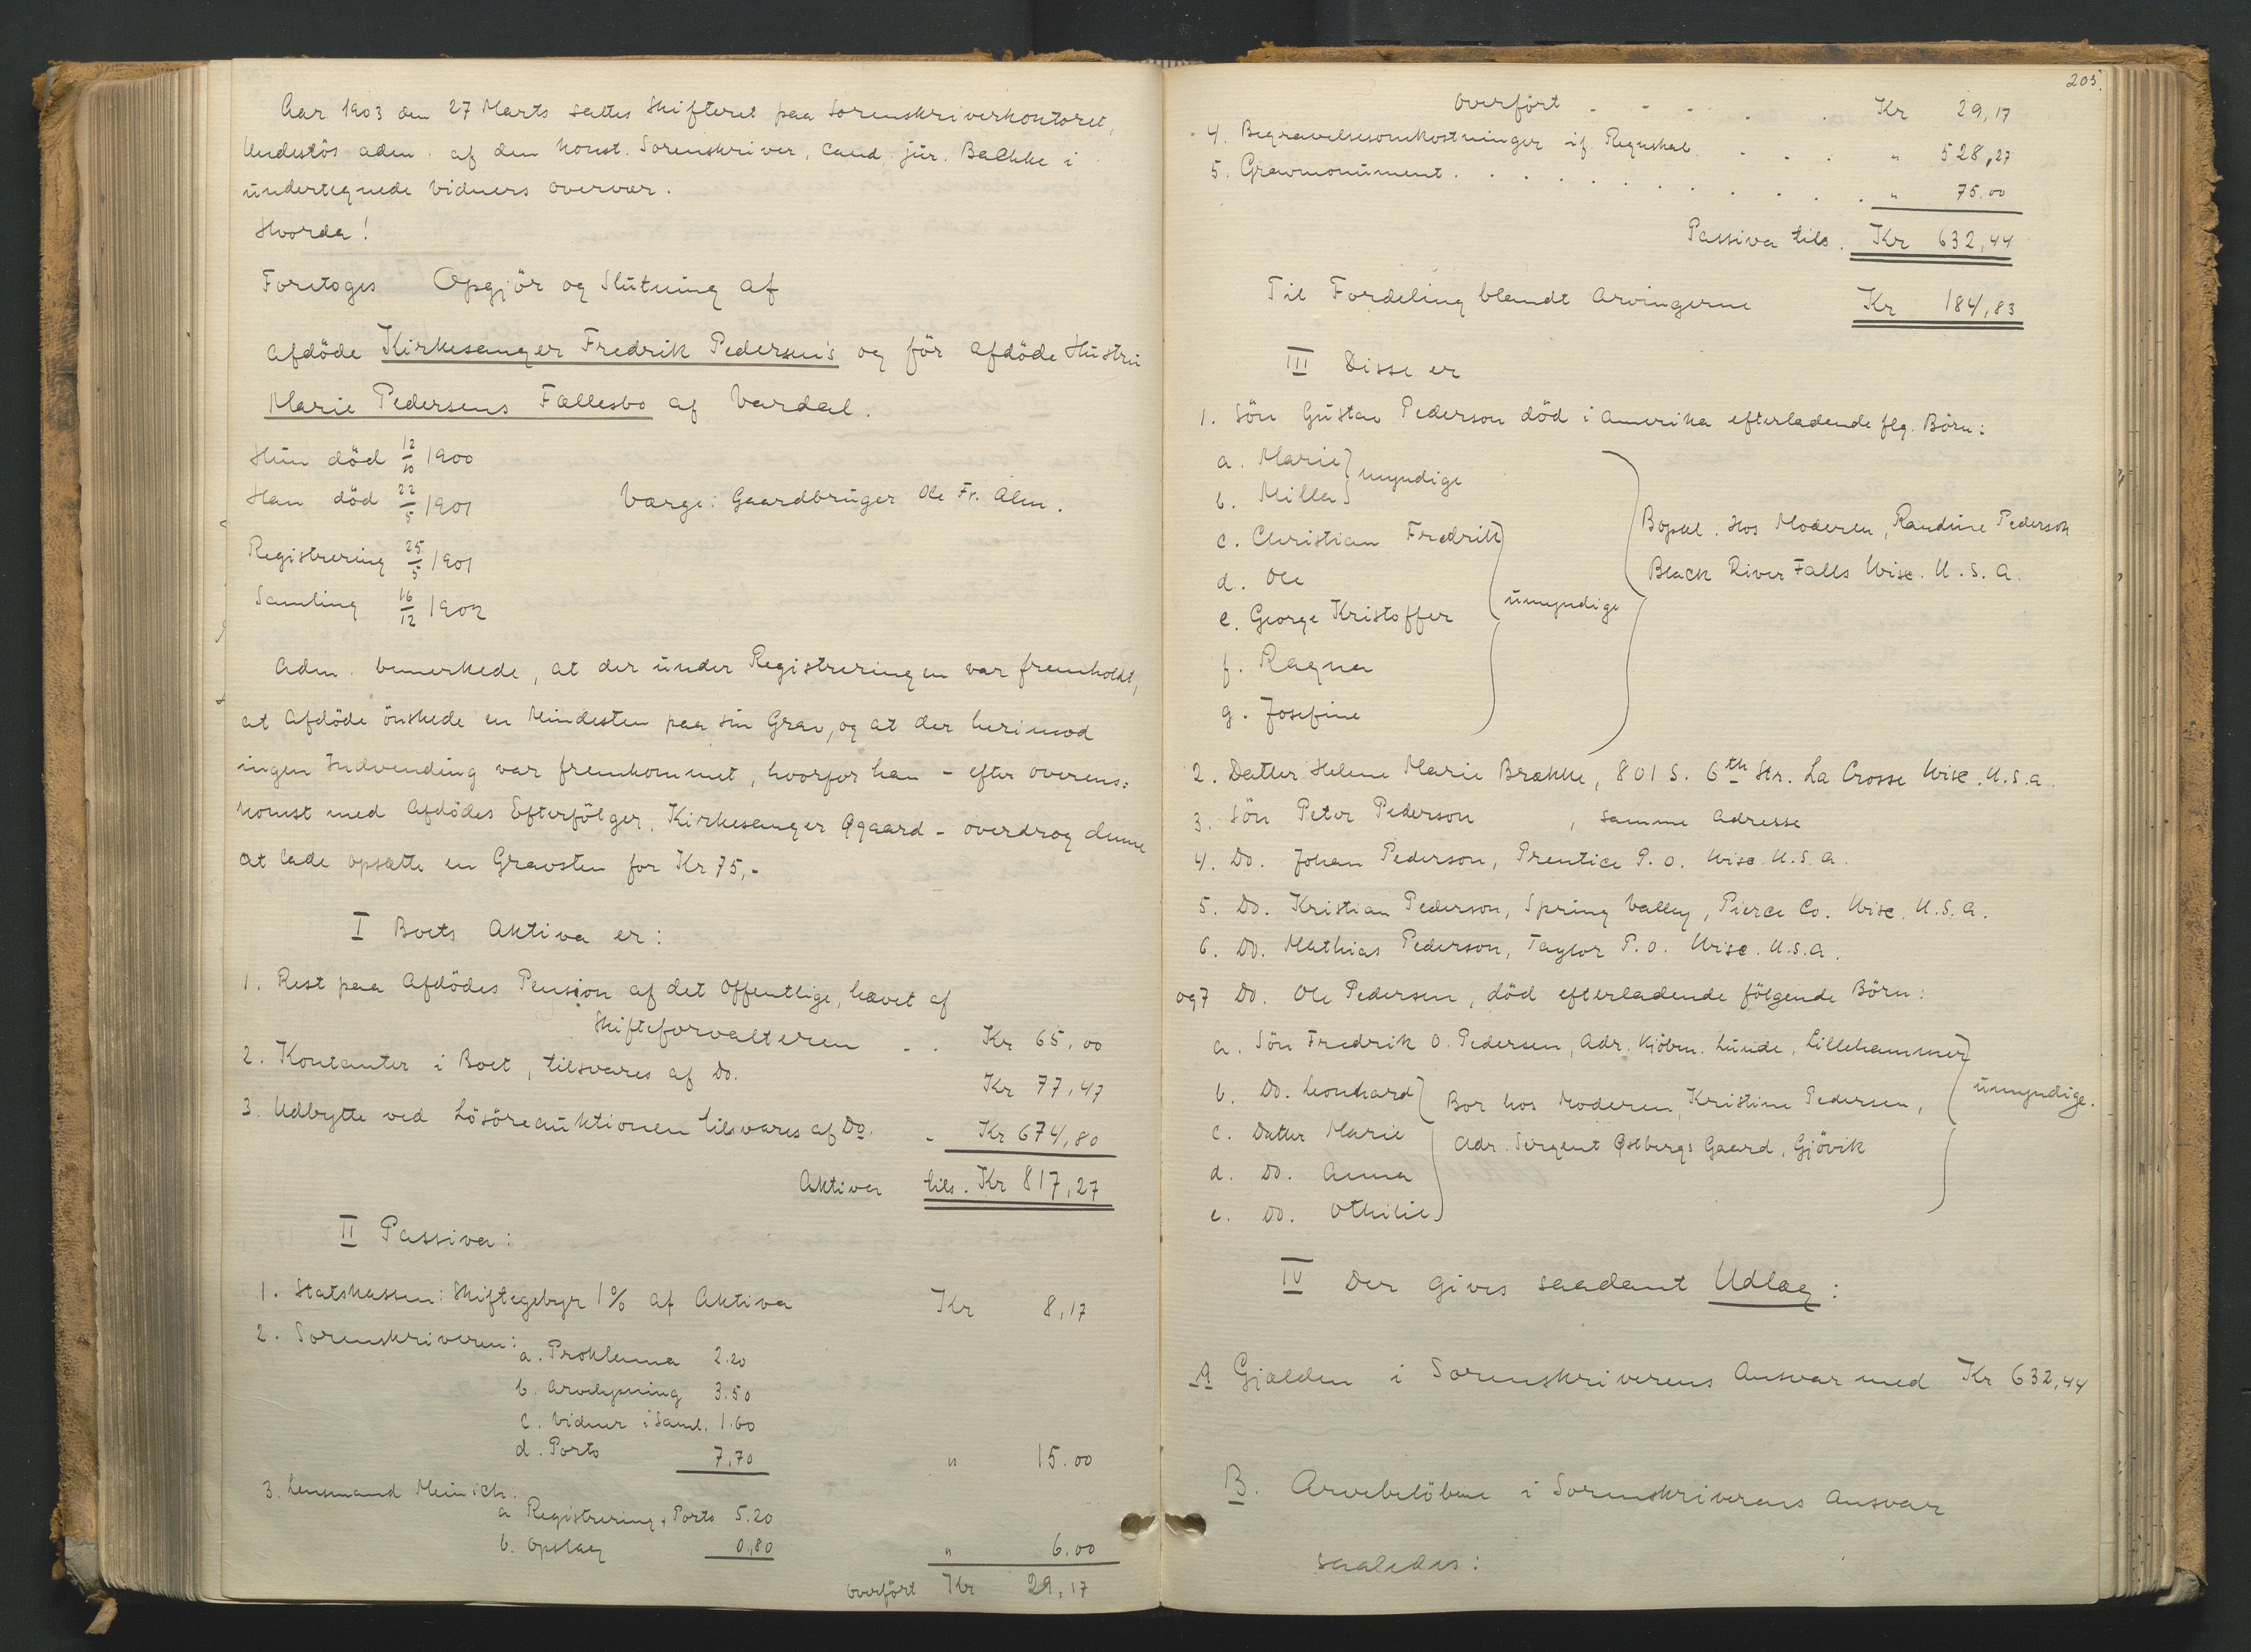 Aar 1903 den 27 Marts sattes Skifteret paa Sorenskriverkontoret,
Undestøs adm. af den konst. Sorenskriver, cand. jur. Bachke i
undertegnede Vidners Overvær.
Hvorda!
Foretoges Opgjör og Slutning af
afdöde Kirkesanger Fredrik Pedersen's og för afdöde Hustru
Marie Pedersens Fællesbo af Vardal.
Hun död 12/10 1900
Han död 22/5 1901 Værge: Gaardbruger Ole Fr. Alm.
Registrering 25/5 1901
Samling 16/12 1902
Adm. bemerkede, at der under Registreringen var fremholdt,
at Afdöde önskede en Mindesten paa sin Grav, og at der herimod
ingen Indvending var fremkommet, hvorfor han - efter Overens=
komst med Afdödes Efterfölger, Kirkesanger Øgaard - overdrog denne
at lade opsætte en Gravsten for Kr 75,-
I Boets Aktiva er:
1. Rest paa Afdödes Pension af det Offentlige, hævet af
Skifteforvalteren . . Kr 65,00
2. Kontanter i Boet, tilsvares af Do. Kr 77,47
3. Udbytte ved Lösöreauktionen tilsvares af Do. - Kr 674,80
Aktiva tils. Kr 817,27
II Passiva:
1. Statskassen: Skiftegebyr 1% af Aktiva Kr 8,17
2. Sorenskriveren:
a. Proklama 2.20
b. Arvelysning 3.50
c. Vidner i Saml. 1.60
d. Porto 7,70 " 15.00
3. Lensmand Meinich:
a Registrering + Porto 5.20
b. Opslag 0,80 " 6.00
Overfört Kr 29,17
205.
Overfört - - - . . Kr 29,17
4. Begravelsesomkostninger if. Regnskab . . . " 528,27
5. Gravmonument . . . . . . . . . . " 75.00
Passiva tils. Kr 632,44
Til Fordeling blandt Arvingerne Kr 184,83
III Disse er
1. Sön Gustav Pederson död i Amerika efterladende flg. Börn:
a. Marie } myndige
b. Milla
c. Christian Fredrik
d. Ole
e. George Kristoffer } umyndige
f. Ragna
g. Josefine
Bopæl. Hos Moderen, Randine Pederson
Black River Falls Wisc. U.S.A.
2. Datter Helene Marie Brække, 801 S. 6th Str. La Crosse Wisc. U.S.A.
3. Sön Peter Pederson , samme Adresse
4. Do. Johan Pederson, Prentice P.O. Wisc. U.S.A.
5. Do. Kristian Pederson, Spring Valley, Pierce Co. Wisc. U.S.A.
6. Do. Mathias Pederson, Taylor P.O. Wisc. U.S.A.
og 7 Do. Ole Pedersen, död efterladende fölgende Börn:
a. Sön Fredrik O. Pedersen, Adr. Kjöbm. Lunde, Lillehammer
b. Do. Leonhard
c. Datter Marie
d. Do. Anna
e. Do. Othilie
Bor hos Moderen, Kristine Pedersen,
Adr. Sergent Østbergs Gaard, Gjövik
umyndige.
IV Der gives saadant Udlæg:
A Gjælden i Sorenskriverens Ansvar med Kr 632,44
B. Arvebelöbene i Sorenskriverens Ansvar
saaledes: